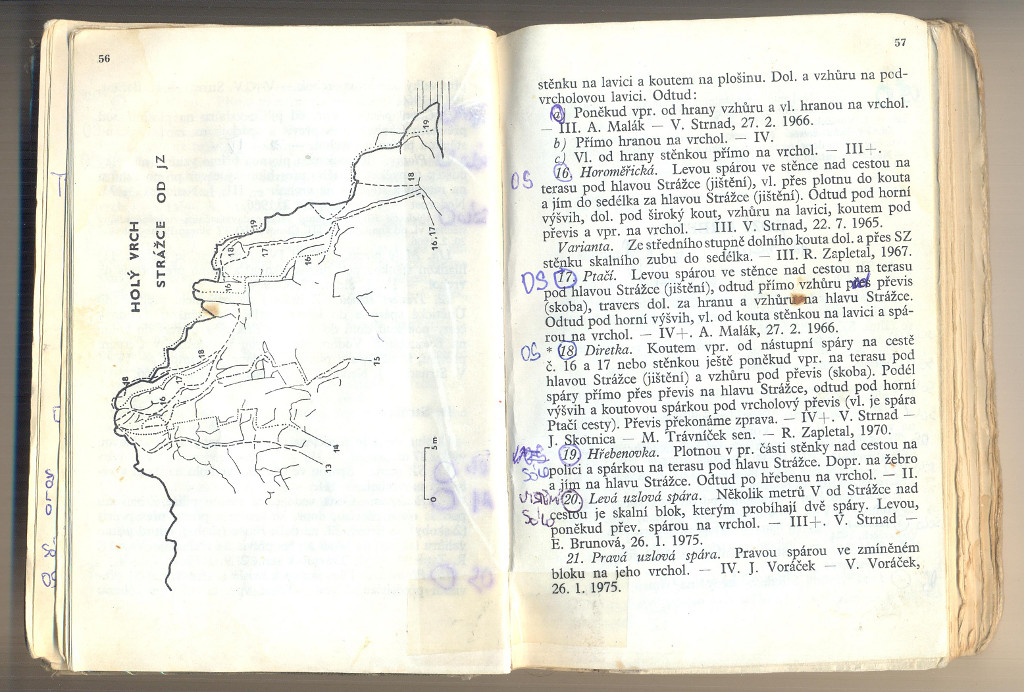 56
HOLÝ VRCH
STRÁŽCE OD JZ
19
18
16, 17
19
18
17
16
16
18
18
16
15
14
13
5 m
0
OS
SÓLO
57
stěnku na lavici a koutem na plošinu. Dol. a vzhůru na pod-
vrcholovou lavici. Odtud:
a) Poněkud vpr. od hrany vzhůru a vl. hranou na vrchol.
— III. A. Malák — V. Strnad, 27. 2. 1966.
b) Přímo hranou na vrchol. — IV.
c) Vl. od hrany stěnkou přímo na vrchol. — III+.
OS 16. Horoměřická. Levou spárou ve stěnce nad cestou na
terasu pod hlavou Strážce (jištění), vl. přes plotnu do kouta
a jím do sedélka za hlavou Strážce (jištění). Odtud pod horní
výšvih, dol. pod široký kout, vzhůru na lavici, koutem pod
převis a vpr. na vrchol. — III. V. Strnad, 22. 7. 1965.
Varianta. Ze středního stupně dolního kouta dol. a přes SZ
stěnku skalního zubu do sedélka. — III. R. Zapletal, 1967.
OS 17. Ptačí. Levou spárou ve stěnce nad cestou na terasu
pod hlavou Strážce (jištění), odtud přímo vzhůru pod převis
(skoba), travers dol. za hranu a vzhůru na hlavu Strážce.
Odtud pod horní výšvih, vl. od kouta stěnkou na lavici a spá-
rou na vrchol. — IV+. A. Malák, 27. 2. 1966.
OS * 18. Diretka. Koutem vpr. od nástupní spáry na cestě
č. 16 a 17 nebo stěnkou ještě poněkud vpr. na terasu pod
hlavou Strážce (jištění) a vzhůru pod převis (skoba). Podél
spáry přímo přes převis na hlavu Strážce, odtud pod horní
výšvih a koutovou spárkou pod vrcholový převis (vl. je spára
Ptačí cesty). Převis překonáme zprava. — IV+. V. Strnad —
J. Skotnica — M. Trávníček sen. — R. Zapletal, 1970.
19. Hřebenovka. Plotnou v pr. části stěnky nad cestou na
SÓLO polici a spárkou na terasu pod hlavu Strážce. Dopr. na žebro
a jím na hlavu Strážce. Odtud po hřebenu na vrchol. — II.
20. Levá uzlová spára. Několik metrů V od Strážce nad
SÓLO cestou je skalní blok, kterým probíhají dvě spáry. Levou,
poněkud přev. spárou na vrchol. — III+. V. Strnad —
E. Brunová, 26. 1. 1975.
21. Pravá uzlová spára. Pravou spárou ve zmíněném
bloku na jeho vrchol. — IV. J. Voráček — V. Voráček,
26. 1. 1975.